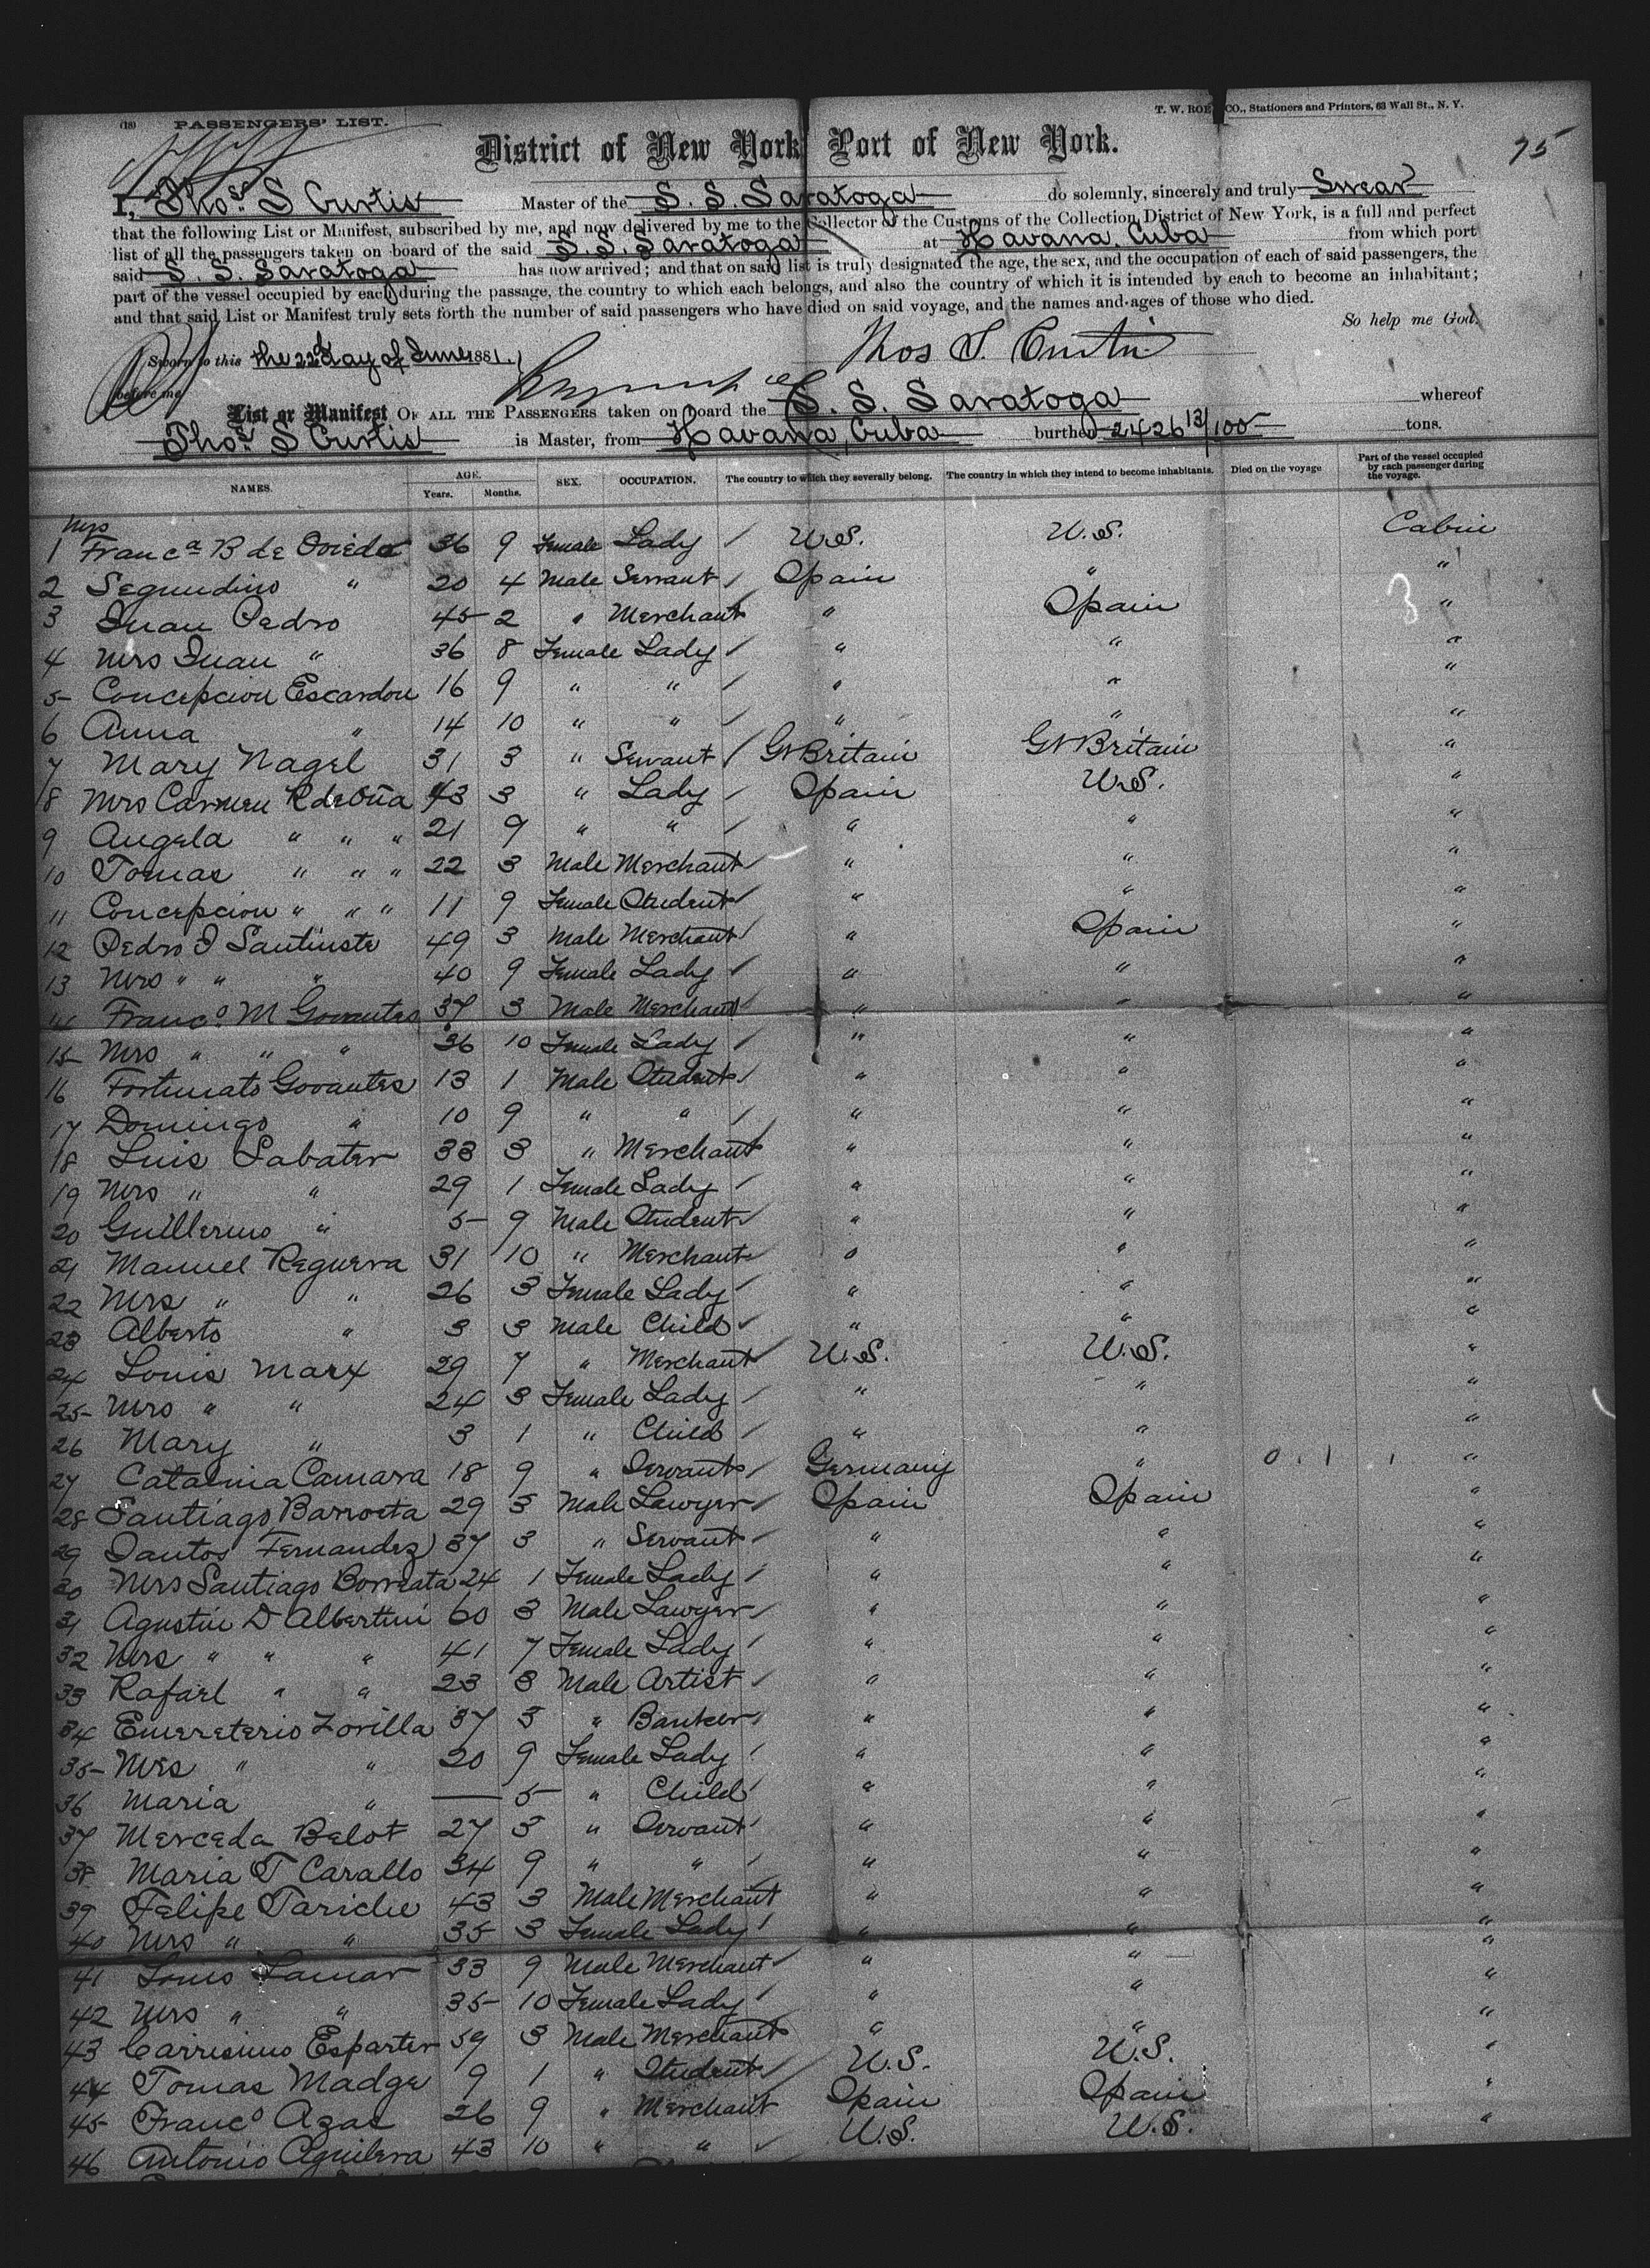 (18) PASSENGERS' LIST.
T. W. ROE CO., Stationers and Printers, 63 Wall St., N. Y.
75
District of New York Port of New York.
I, Thos. S Curtis Master of the S. S. Saratoga do solemnly, sincerely and truly Swear
that the following List or Manifest, subscribed by me, and now delivered by me to the Collector of the Customs of the Collection District of New York, is a full and perfect
list of all the passengers taken on board of the said S. S. Saratoga at Havana, Cuba from which port
said S. S. Saratoga has now arrived; and that on said list is truly designated the age, the sex, and the occupation of each of said passengers, the
part of the vessel occupied by each during the passage, the country to which each belongs, and also the country of which it is intended by each to become an inhabitant;
and that said List or Manifest truly sets forth the number of said passengers who have died on said voyage, and the names and ages of those who died.
So help me God.
Sworn to this the 22d day of June 1881.
Thos S. Curtis
before me
List or Manifest OF ALL THE PASSENGERS taken on board the S. S. Saratoga whereof
Thos. S Curtis is Master, from Havana, Cuba burthen 2426 13/100 tons.
NAMES. AGE. Years. Months. SEX. OCCUPATION. The country to which they severally belong. The country in which they intend to become inhabitants. Died on the voyage Part of the vessel occupied by each passenger during the voyage.
1 Mrs Franca B de Oviedo 36 9 Female Lady U.S. U.S. Cabin
2 Segundino " 20 4 Male Servant Spain " "
3 Juan Pedro 45 2 " Merchant " Spain 3 "
4 Mrs Juan " 36 8 Female Lady " " "
5 Concepcion Escardou 16 9 " " " " "
6 Anna " 14 10 " " " " "
7 Mary Nagel 31 3 " Servant Gt Britain Gt Britain "
8 Mrs Carmen R de Oña 43 3 " Lady Spain U.S. "
9 Angela " " " 21 9 " " " " "
10 Tomas " " " 22 3 Male Merchant " " "
11 Concepcion " " " 11 9 Female Student " " "
12 Pedro I Santiuste 49 3 Male Merchant " Spain "
13 Mrs " " " 40 9 Female Lady " " "
14 Franco. M Govantes 37 3 Male Merchant " " "
15 Mrs " " " 36 10 Female Lady " " "
16 Fortunato Govantes 13 1 Male Student " " "
17 Domingo " 10 9 " " " " "
18 Luis Sabater 33 3 " Merchant " " "
19 Mrs " " 29 1 Female Lady " " "
20 Guillermo " 5 9 Male Student " " "
21 Manuel Reguera 31 10 " Merchant " " "
22 Mrs " " 26 3 Female Lady " " "
23 Alberto " 3 3 Male Child " " "
24 Louis Marx 29 7 " Merchant U.S. U.S. "
25 Mrs " " 24 3 Female Lady " " "
26 Mary " 3 1 " Child " " "
27 Catalina Camara 18 9 " Servant Germany " 0 1 1 "
28 Santiago Barroeta 29 3 Male Lawyer Spain Spain "
29 Santos Fernandez 37 3 " Servant " " "
30 Mrs Santiago Borreata 24 1 Female Lady " " "
31 Agustin D Albertini 60 3 Male Lawyer " " "
32 Mrs " " " 41 7 Female Lady " " "
33 Rafael " " 23 8 Male Artist " " "
34 Emereterio Zorilla 37 3 " Banker " " "
35 Mrs " " 20 9 Female Lady " " "
36 Maria " — 5 " Child " " "
37 Merceda Belot 27 3 " Servant " " "
38 Maria T Carallo 34 9 " " " " "
39 Felipe Tariche 43 3 Male Merchant " " "
40 Mrs " " 35 3 Female Lady " " "
41 Louis Lamar 33 9 Male Merchant " " "
42 Mrs " " 35 10 Female Lady " " "
43 Carrisimo Esparter 59 3 Male Merchant " " "
44 Tomas Madge 9 1 " Student U.S. U.S. "
45 Franco Azas 26 9 " Merchant Spain Spain "
46 Antonio Aguilera 43 10 " " U.S. U.S. "